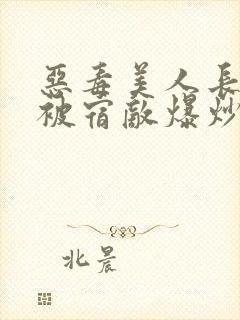 惡毒美人長
被宿敵爆炒
北晨